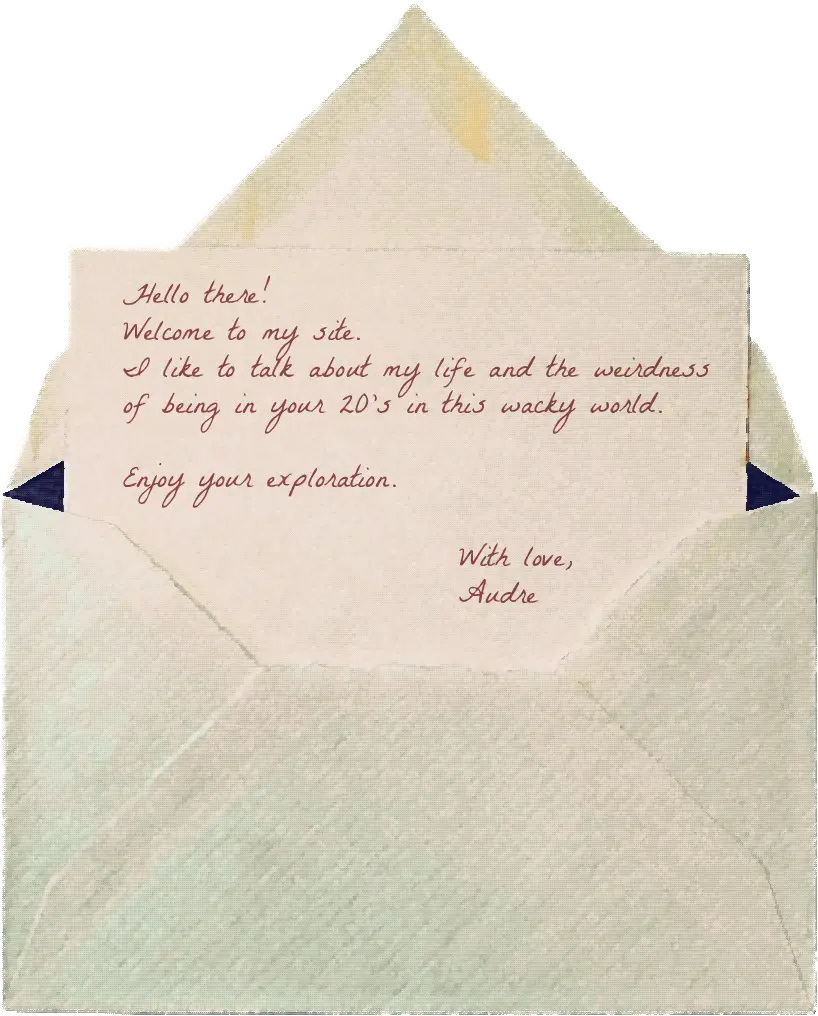 Hello there!
Welcome to my site.
I like to talk about my life and the weirdness
of being in your 20's in this wacky world.
Enjoy your exploration.
With love,
Audre